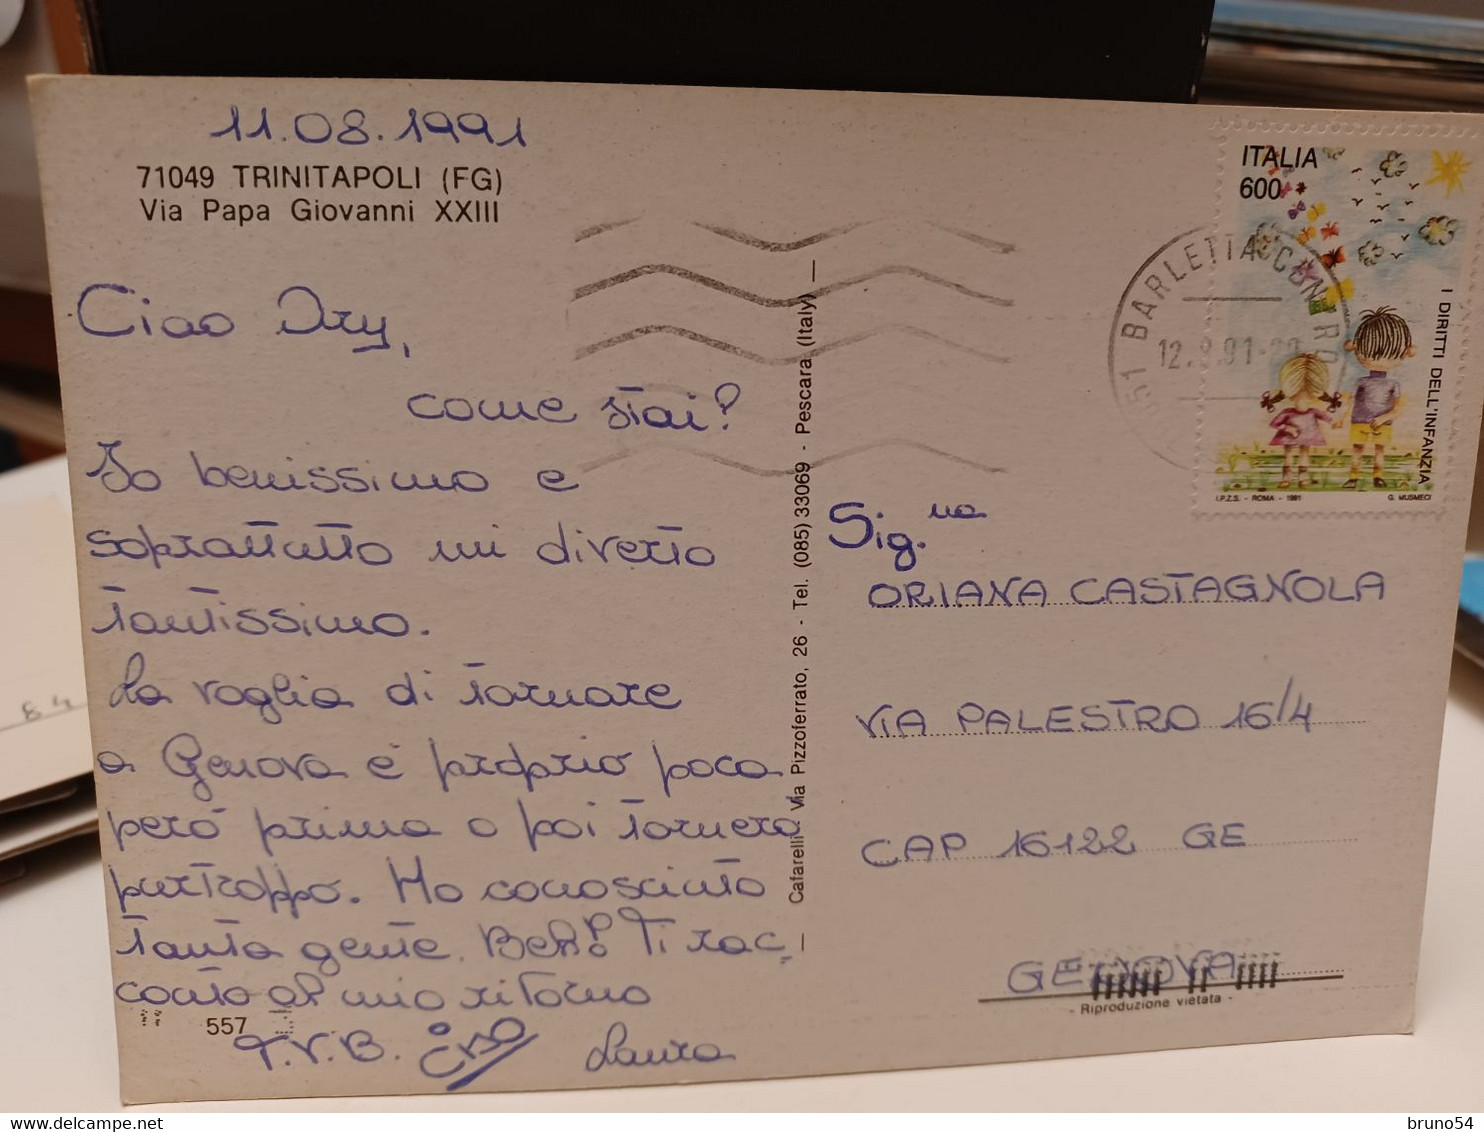 11.08.1991
71049 TRINITAPOLI (FG)
Via Papa Giovanni XXIII
Ciao Ory,
come stai?
Io benissimo e
soprattutto mi diverto
tantissimo.
La voglia di tornare
a Genova è proprio poca
però prima o poi tornerò
purtroppo. Ho conosciuto
tanta gente. Beh! Ti rac-
conto al mio ritorno
T.V.B. Ciao Laura
557
Cafarelli - Via Pizzoferrato, 26 - Tel. (085) 33069 - Pescara (Italy)
ITALIA
600
I DIRITTI DELL'INFANZIA
I.P.Z.S. - ROMA - 1991 G. MUSMECI
BARLETTA CENTRO
12.8.91
Sig.na
ORIANA CASTAGNOLA
VIA PALESTRO 16/4
CAP 16122 GE
GENOVA
- Riproduzione vietata -
84
http://www.delcampe.net
bruno54